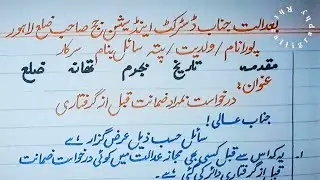 بعدالت جناب ڈسٹرکٹ اینڈ سیشن جج صاحب ضلع لاہور
پورا نام / ولدیت / پتہ سائل بنام سرکار
مقدمہ تاریخ بجرم تھانہ ضلع
عنوان:
درخواست بمراد ضمانت قبل از گرفتاری
جناب عالی!
سائل حسب ذیل عرض گزار ہے
1۔ یہ کہ اس سے قبل کسی بھی مجاز عدالت میں کوئی درخواست ضمانت
قبل از گرفتاری دائر کی گئی ہے۔